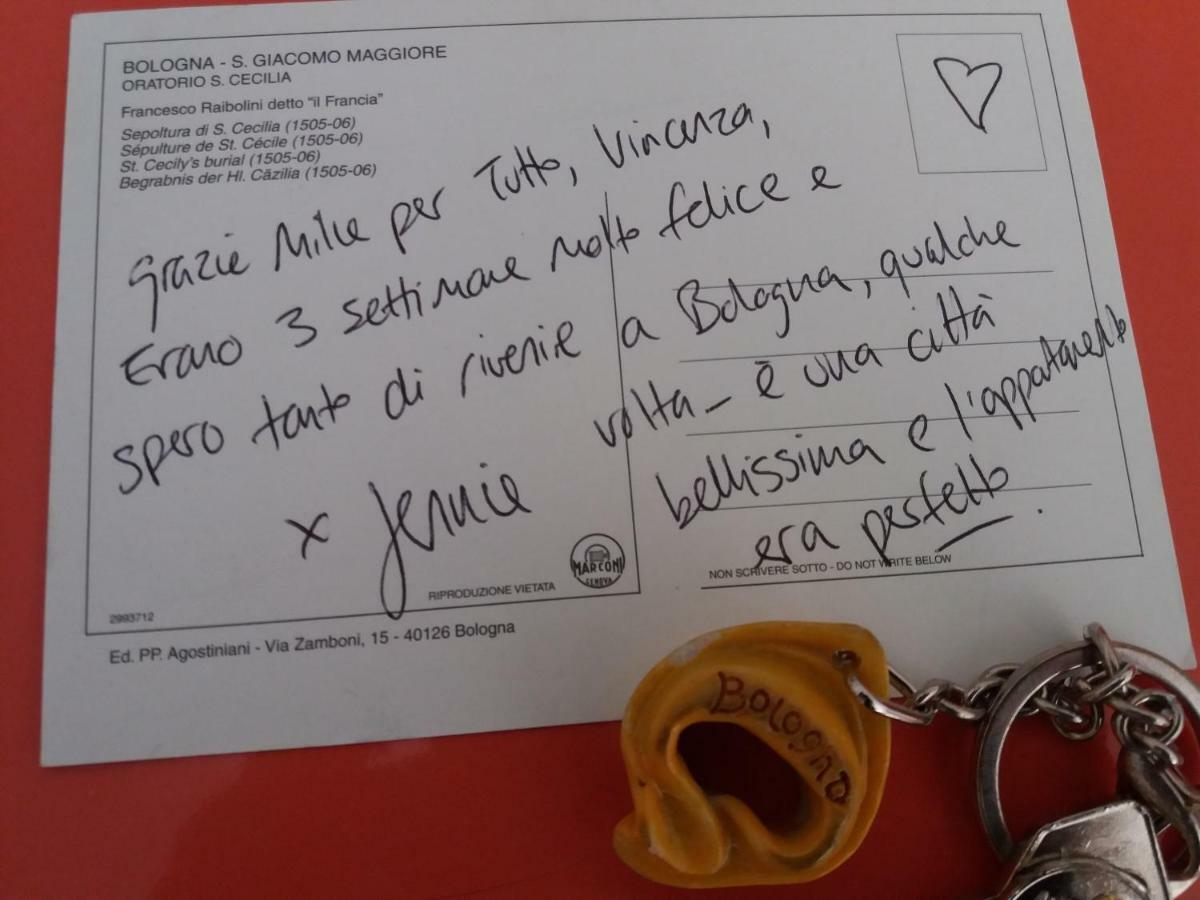 BOLOGNA - S. GIACOMO MAGGIORE
ORATORIO S. CECILIA
Francesco Raibolini detto "il Francia"
Sepoltura di S. Cecilia (1505-06)
Sépulture de St. Cécile (1505-06)
St. Cecily's burial (1505-06)
Begrabnis der Hl. Căzilia (1505-06)
Grazie Mille per Tutto, Vincenza,
Erano 3 settimane molto felice e
spero tanto di rivenire a Bologna, qualche
volta - è una città
bellissima e l'appartamento
era perfetto.
x Jennie
MARCONI
GENOVA
RIPRODUZIONE VIETATA
NON SCRIVERE SOTTO - DO NOT WRITE BELOW
2993712
Ed. PP. Agostiniani - Via Zamboni, 15 - 40126 Bologna
Bologna